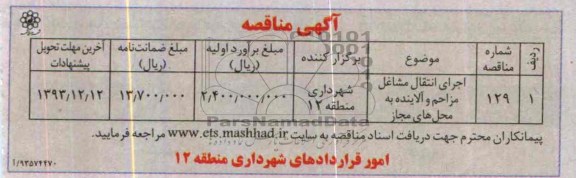 آگهی مناقصه
ردیف | شماره مناقصه | موضوع | برگزار کننده | مبلغ برآورد اولیه (ریال) | مبلغ ضمانت‌نامه (ریال) | آخرین مهلت تحویل پیشنهادات
۱ | ۱۲۹ | اجرای انتقال مشاغل مزاحم و آلاینده به محل‌های مجاز | شهرداری منطقه ۱۲ | ۲,۴۰۰,۰۰۰,۰۰۰ | ۱۳,۷۰۰,۰۰۰ | ۱۳۹۳,۱۲,۱۲
ParsNamadData
پیمانکاران محترم جهت دریافت اسناد مناقصه به سایت www.ets.mashhad.ir مراجعه فرمایید.
امور قراردادهای شهرداری منطقه ۱۲
۱/۹۳۵۷۴۴۷۰